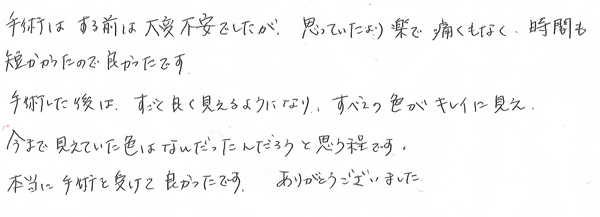 手術は する前は 大変不安でしたが、思っていたより楽で 痛くもなく、時間も
短かかったので良かったです。
手術した後は、すごく良く見えるようになり、すべての色がキレイに見え、
今まで見えていた色はなんだったんだろうと思う程です。
本当に手術を受けて良かったです。 ありがとうございました